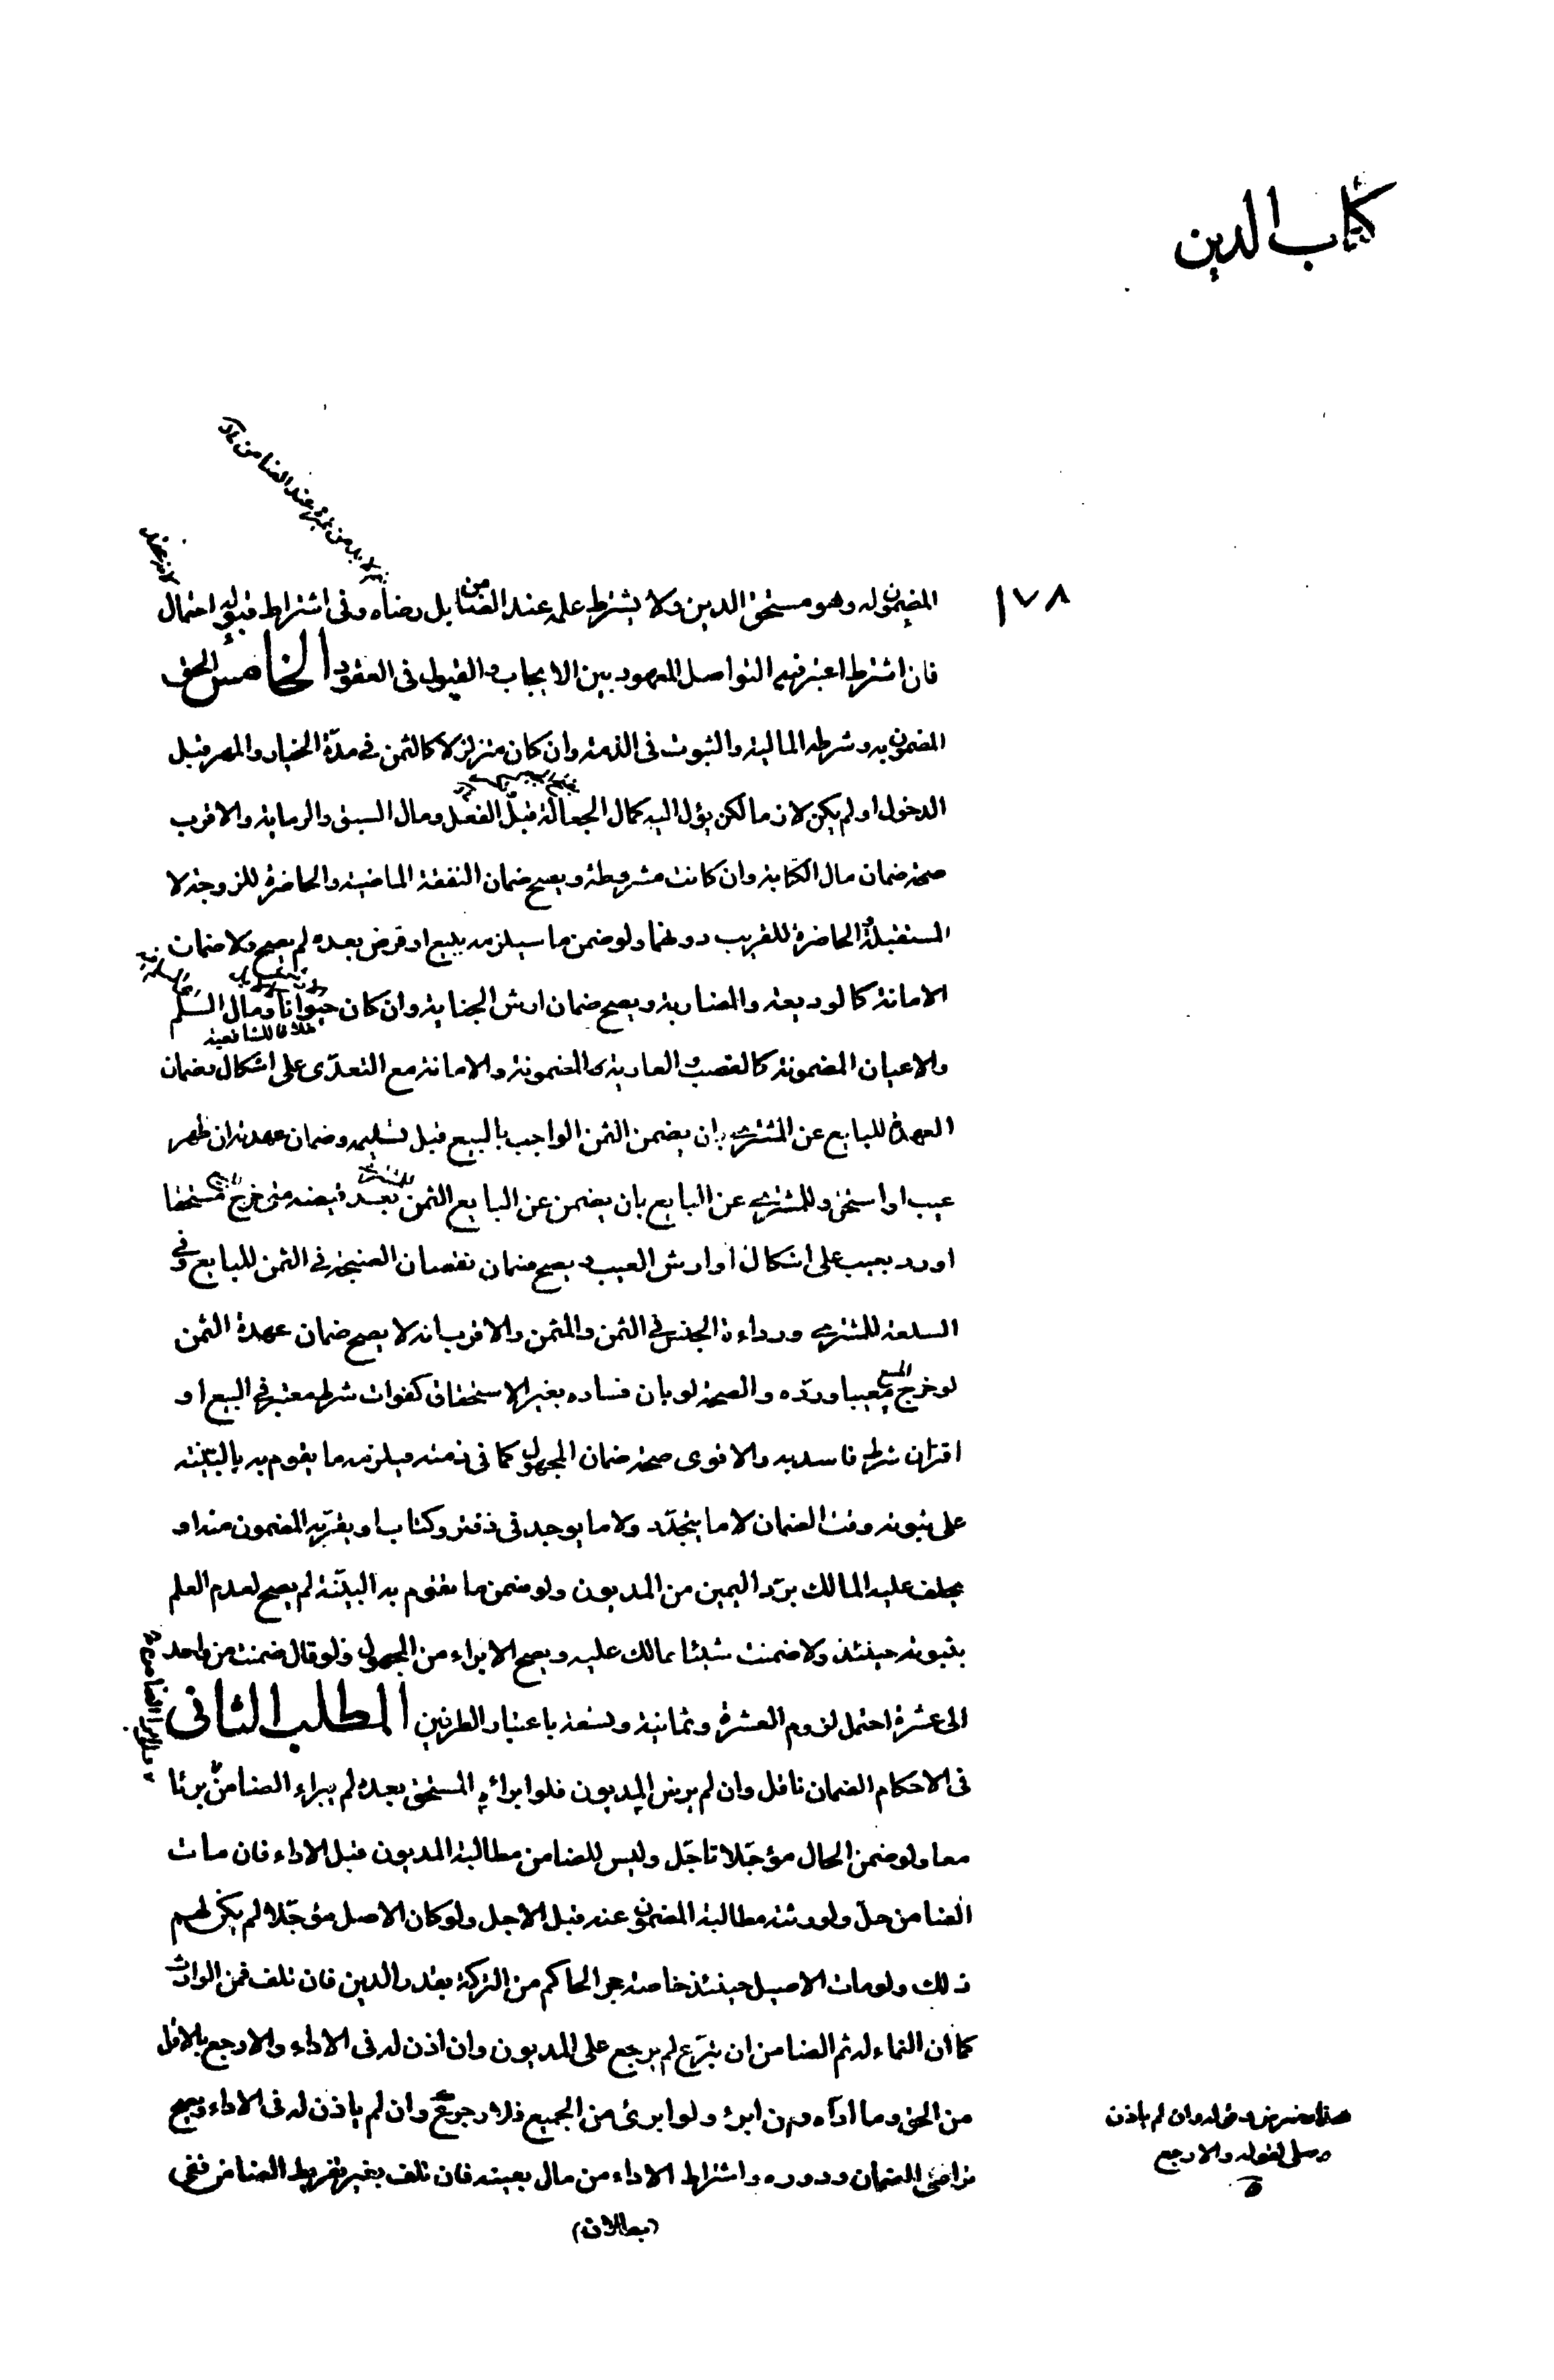 كتاب الدين
١٧٨
المضمون له وهو مستحق الدين ولا يشترط علمه عند الضامن بل رضاه وفى اشتراط قبوله احتمال
فان اشترط اعتبر فيه التواصل المعهود بين الايجاب والقبول فى العقود الخامس الحق
المضمون به وشرطه المالية والثبوت فى الذمة وان كان متزلزلا كالثمن فى مدّة الخيار والمهر قبل
الدخول او لم يكن لازما لكن يؤل اليه كمال الجعالة قبل الفعل ومال السبق والرماية والاقرب
صحة ضمان مال الكتابة وان كانت مشروطة ويصح ضمان النفقة الماضية والحاضرة للزوجة لا
المستقبلة والحاضرة للقريب دونهما ولو ضمن ما سيلزمه ببيع او قرض بعده لم يصح ولا ضمان
الامانة كالوديعة والمضاربة ويصح ضمان ارش الجناية وان كان حيوانا ومال السلم
خلافا للشافعية
والاعيان المضمونة كالغصب والعارية المضمونة والامانة مع التعدّى على اشكال وضمان
العهدة للبايع عن المشترى بان يضمن الثمن الواجب بالبيع قبل تسليمه وضمان عهدته ان ظهر
عيب او استحق وللمشترى عن البايع بان يضمن عن البايع الثمن بعد قبضه متى خرج المبيع مستحقا
او رد بعيب على اشكال او ارش العيب ويصح ضمان نقصان الصنجة فى الثمن للبايع وفى
السلعة للمشترى ورداءة الجنس فى الثمن والمثمن والاقرب انه لا يصح ضمان عهدة الثمن
لو خرج المبيع معيبا وردّه والصحة لو بان فساده بغير الاستحقاق كفوات شرط معتبر فى البيع او
اقتران شرط فاسد به والاقوى صحة ضمان المجهول كما فى ذمته فيلزمه ما يقوم به بالبيّنة
على ثبوته وقت الضمان لا ما يتجدّد ولا ما يوجد فى دفتر وكتاب او يقرّ به المضمون عنه او
يحلف عليه المالك بردّ اليمين من المديون ولو ضمن ما تقوم به البيّنة لم يصح لعدم العلم
بثبوته حينئذ ولا ضمنت شيئا مما لك عليه ويصح الابراء من المجهول ولو قال ضمنت من واحد
الى عشرة احتمل لزوم العشرة وثمانية وتسعة باعتبار الطرفين المطلب الثانى
فى الاحكام الضمان ناقل وان لم يرض المديون فلو ابرائه المستحق بعده لم يبراء الضامن برئا
معا ولو ضمن الحال مؤجّلا تاجّل وليس للضامن مطالبة المديون قبل الاداء فان مات
الضامن حلّ ولورثته مطالبة المضمون عنه قبل الاجل ولو كان الاصل مؤجّلا لم يكن لهم
ذلك ولو مات الاصيل حينئذ خاصة جر الحاكم من التركة بقدر الدين فان تلف فمن الوارث
كما ان النماء له ثم الضامن ان تبرّع لم يرجع على المديون وان اذن له فى الاداء والا رجع بالاقل
من الحق وما ادّاه ومن ابرء ولو ابرئ من الجميع فلا رجوع وان لم ياذن له فى الاداء ويصح
ترامى الضمان ودوره واشتراط الاداء من مال بعينه فان تلف بغير تفريط الضامن ففى
وان لم ياذن
لقوله والا رجع
(بطلان)